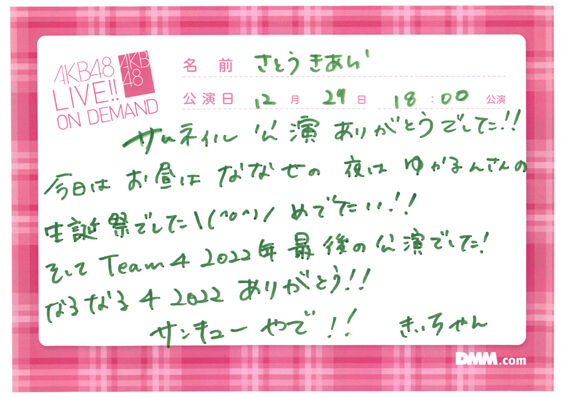 AKB48
LIVE!!
ON DEMAND
AKB
48
名前 さとうきあい
公演日 12月 29日 18:00 公演
サムネイル公演ありがとうでした!!
今日はお昼はななせの 夜はゆかるんさんの
生誕祭でした\(^o^)/ めでたい!!
そしてTeam4 2022年最後の公演でした!
なるなる4 2022 ありがとう!!
サンキューやで!! きぃちゃん
DMM.com